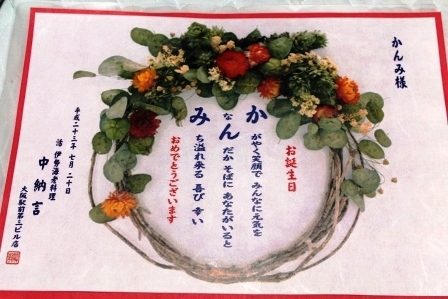 かんみ様
お誕生日
かがやく笑顔で みんなに元気を
なんだか そばに あなたがいると
みち溢れ来る 喜び 幸い
おめでとうございます
平成二十三年 七月 二十日
活 伊勢海老料理
中納言
大阪駅前第三ビル店